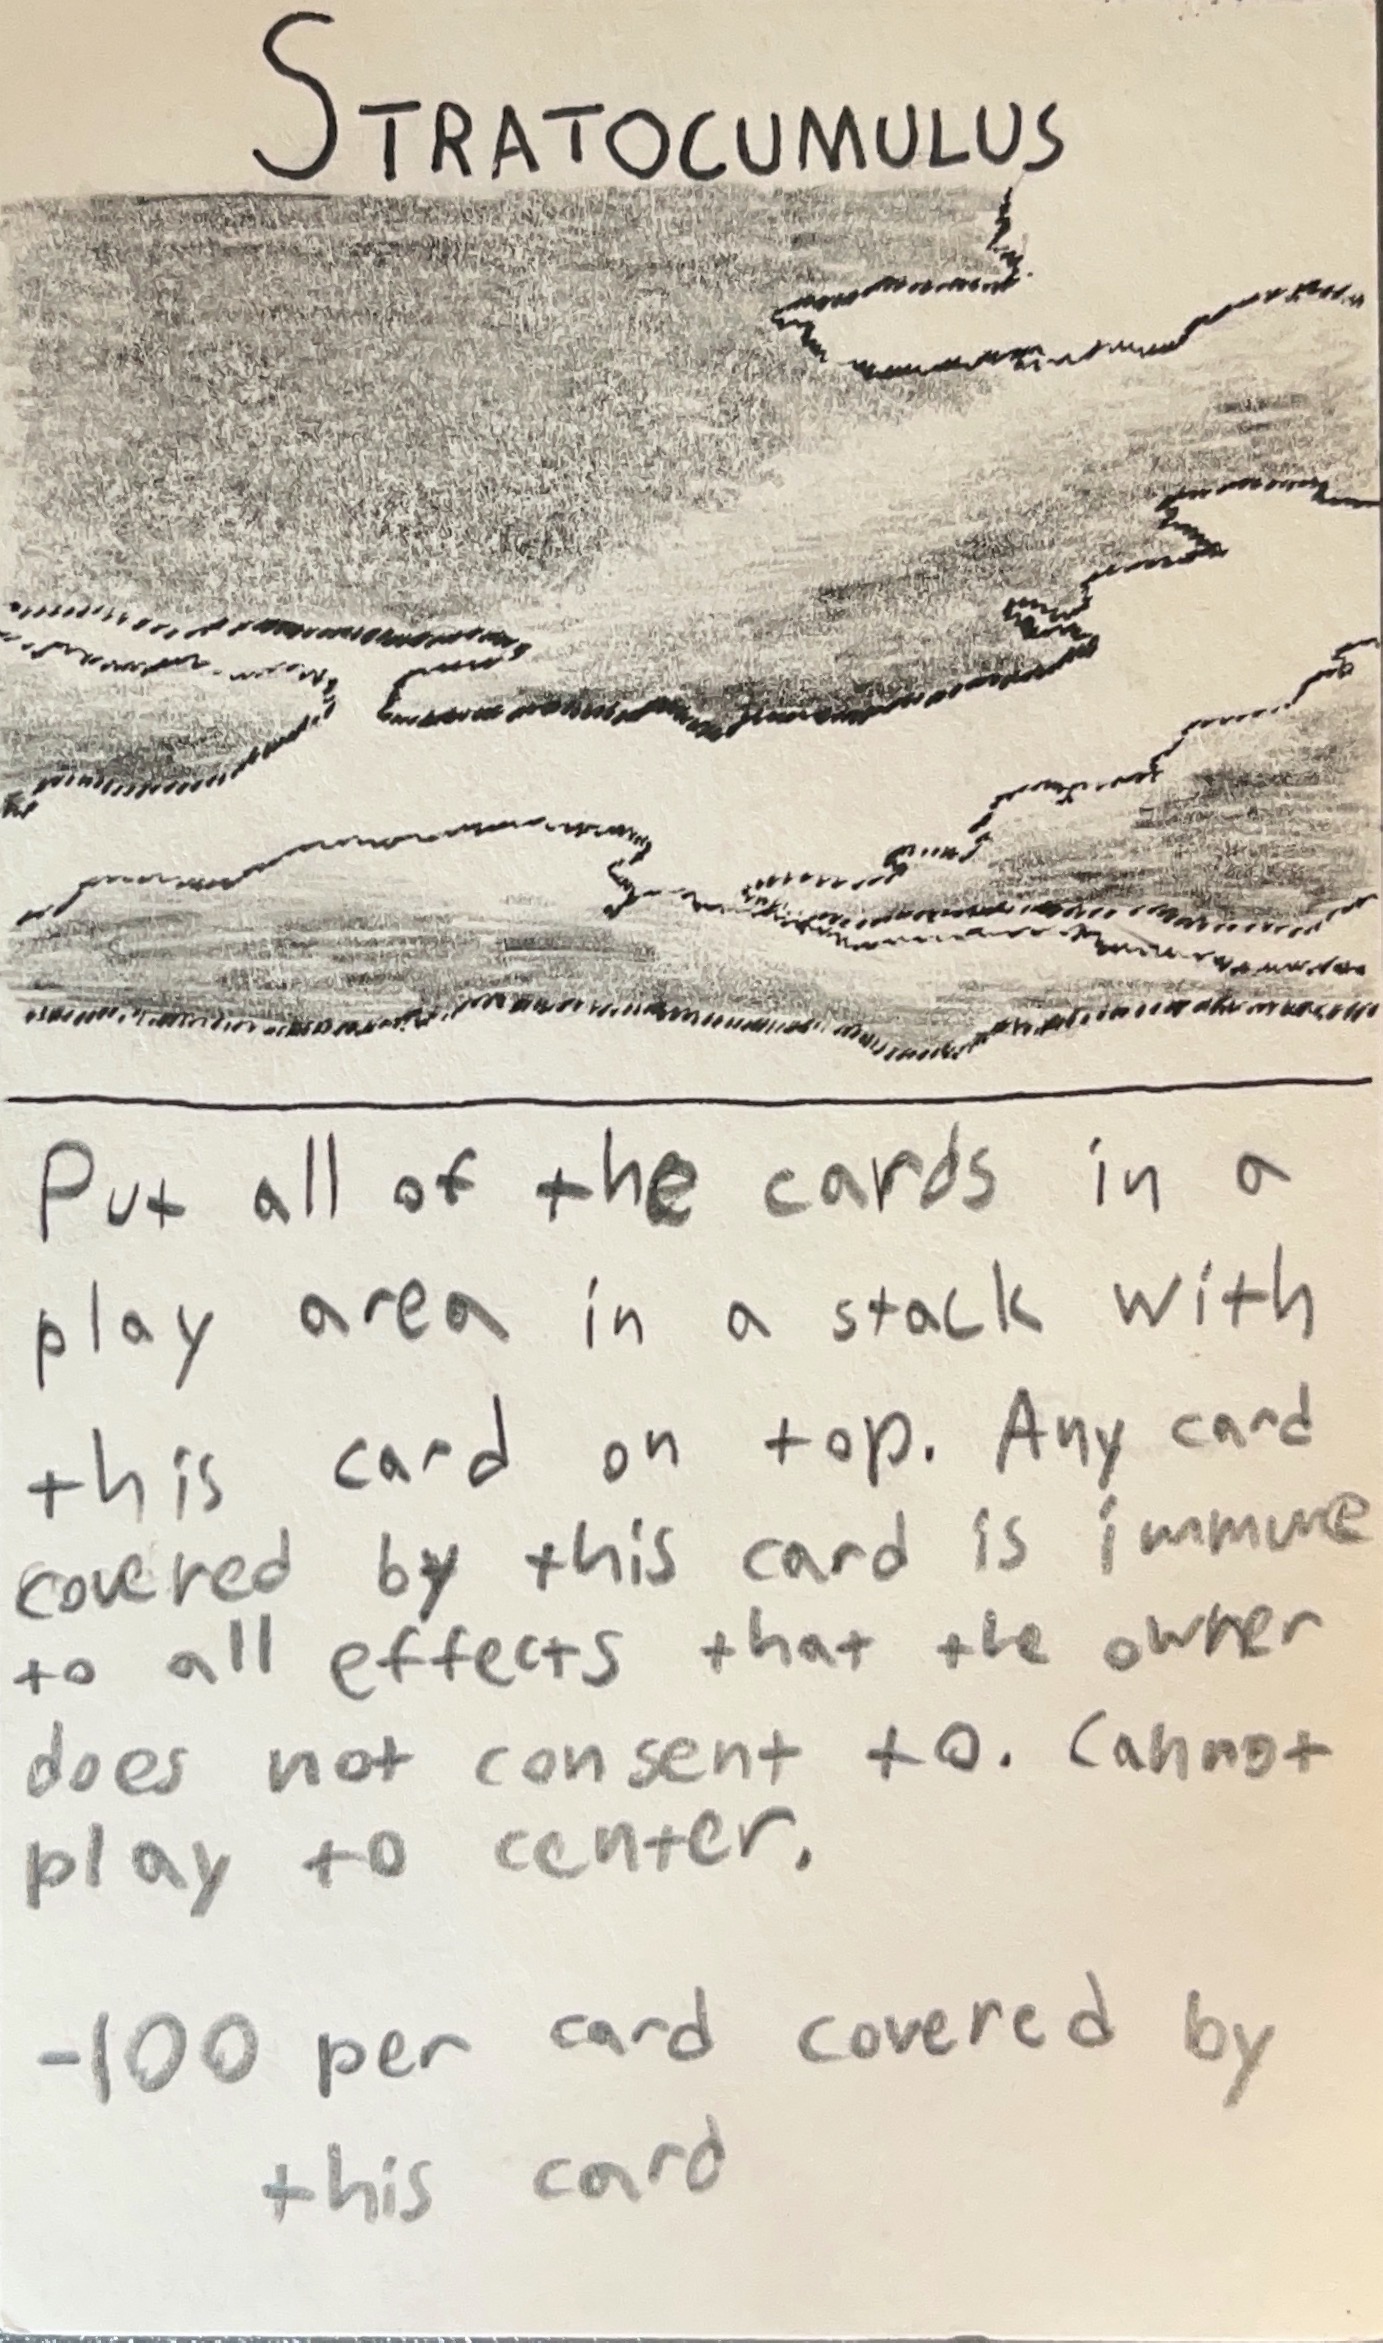 STRATOCUMULUS
Put all of the cards in a
play area in a stack with
this card on top. Any card
covered by this card is immune
to all effects that the owner
does not consent to. Cannot
play to center.
-100 per card covered by
this card